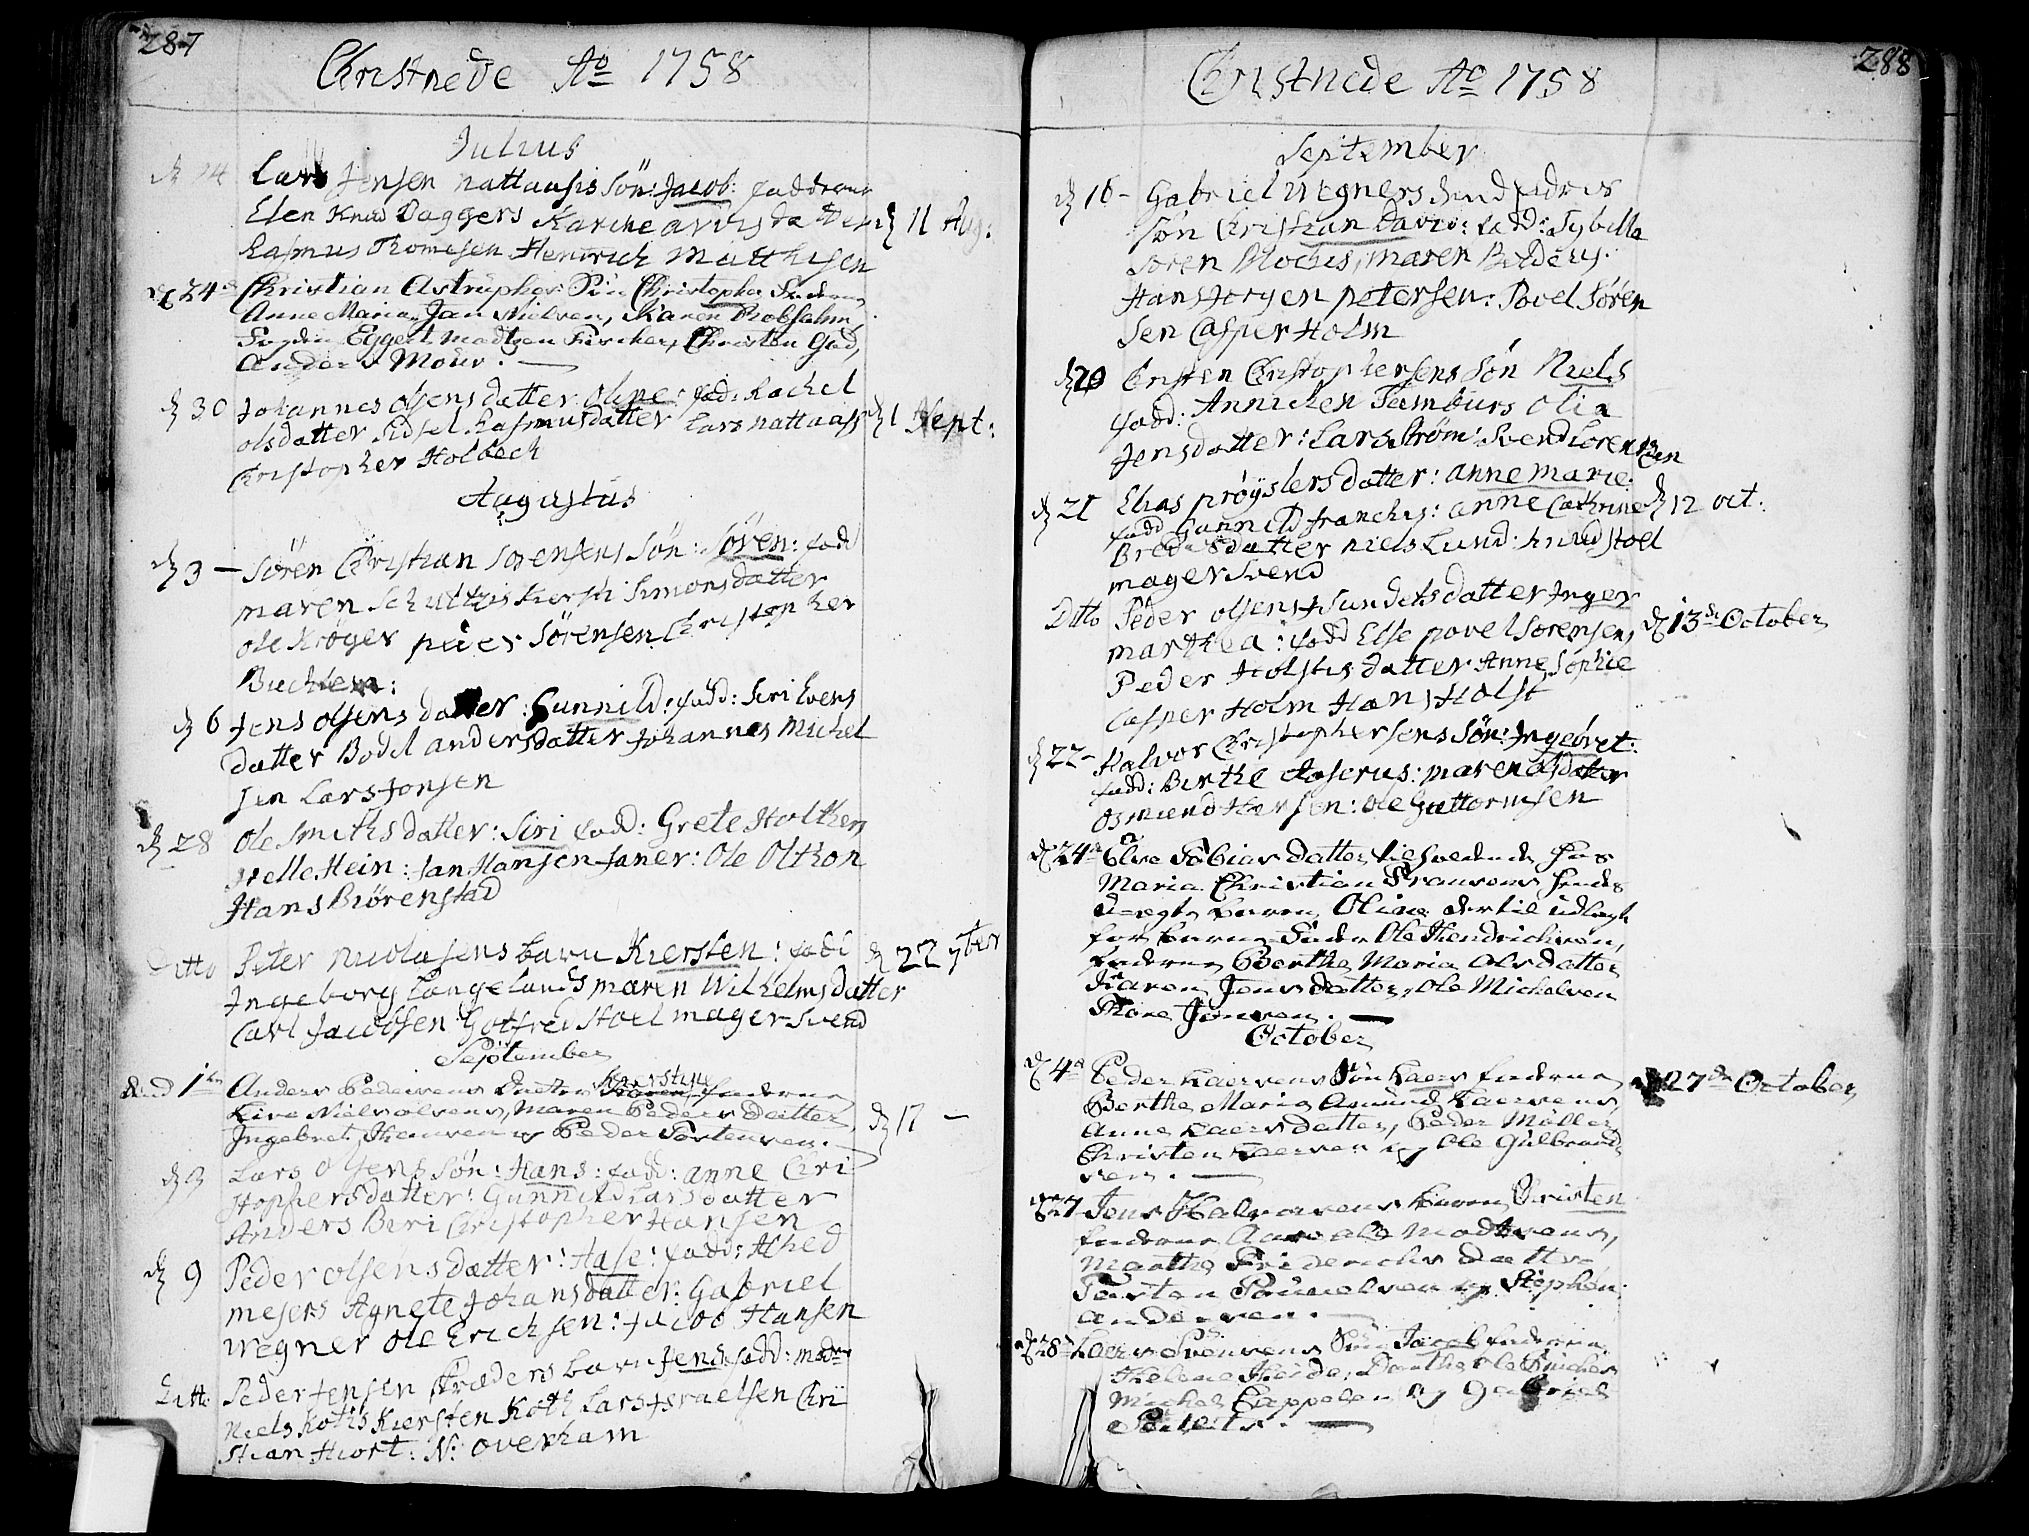 287
Christnede Ao 1758
Julius
d 24 Lars Jensen nattaasis Søn: Jacob: fadderne
Elen Knud Daggers Karine arvisdatter d 11 Aug:
Rasmus Thomesen Hendrich Matthisen
d 24de Christian Astruphs Søn Christopher Fadderne
Anne Maria Jan Nielsen, Karen Robsahm,
Eggert Madtzen Fischer, Christen Gad,
Anders Mour.
d 30 Johannes olsens datter Oline: fad: Rachel
olsdatter Sidsel Rasmusdatter Lars nattaas d 1 Sept:
Christopher Holbech
Augustus
d 3 – Søren Christian sorensens Søn: Søren: fadd
maren Schultzis Kersti Simonsdatter
ole Krøger peder Sørensen Christopher
d 6 Jens olsens datter: Gunnild: fadd: Siri Evens
datter Bodil andersdatter Johannes Michel
sen Lars Jonsen
d 28 Ole Smiths datter: Siri fadd: Grete Holthes
Helle Hein: Jan Hansen Janer: Ole Olthon
Hans Biørenstad
Ditto Peter Nicolasens barn Kiersten: fadd d 22 7ber
Ingeborg Langelands maren Wilhelmsdatter
Carl Jacobsen Gotfred Stoelmager Svend
September
1te Anders Pedersens Datter Kierstine fadderne
Lise Niels olsens, Maren Peders Datter, d 17 –
Ingebret Hansen og Peder Tostensen.
d 3 Lars Olsens Søn: Hans: fadd: anne Chri
stophersdatter: Gunnild Larsdatter
Anders Beri Christopher Hansen
d 9 Peder olsens datter: Aase: fadd: Ahed
mejers Agnete Johansdatter: Gabriel
wegner Ole Erichsen: Jacob Hansen
Ditto Peder Jensen stræders barn Jens fadd: mad
Niels Koths Kiersten Koth Lars Israelsen Chri
stian Hiort: N: overham
288
Christnede Ao 1758
September
d 16 – Gabriel wegners
søn Christian David: fadd: Sybilla
Soren Blochis, maren
Hans Jørgen petersen: Povel Søren
sen Casper Holm
d 20 Christen Christophersens Søn Niels
fadd: Annichen Tamburs Olia
Jensdatter: Lars Strøm: Svend
d 21 Elias prøyslers datter: anne marie
fadd Gunnild franchis: anne Cathrine d 12 oct:
Bredersdatter Niels Lund: Knud Stoel
mager Svend
Ditto Peder olsens Sundets datter Inger
marthea: fadd Else povel Sorensen, d 13de October
Peder Holstis datter Anne Sophie
Casper Holm Hans Holst
d 22 – Halvor Christophersens Søn: Ingebret:
fadd: Berthe Aaserus: maren olsdatter
osmund Hansen: ole Guttormsen
d 24de Elisa Tobias datter tilsvedende hos
Maria Christian Fransens hendes
uægte barn, Oline dertil udlagt
for barne Fader Ole Hendrichsen,
fadderne Berthe Maria Olsdatter
Karen Jensdatter, Ole Michelsen
Thore Jonsen.
October
d 4de Peder Laersens Søn Laers fadderne d 27de October
Berthe Maria Amund Laersens,
Anne Laers datter, Peder Møller,
Christen Laersen og Ole Gulbrand
sen.
d 27 Jens Halvorsens barn Christen
fadderne Madtsens,
Marthe Friderichs Datter
Torsten Poulsen og Stephen
Andersen.
d 28 Laers Svensens Søn Jacob fadderne
Helene Heide, Dorthe ole
Michel Cappelen og Gabriel